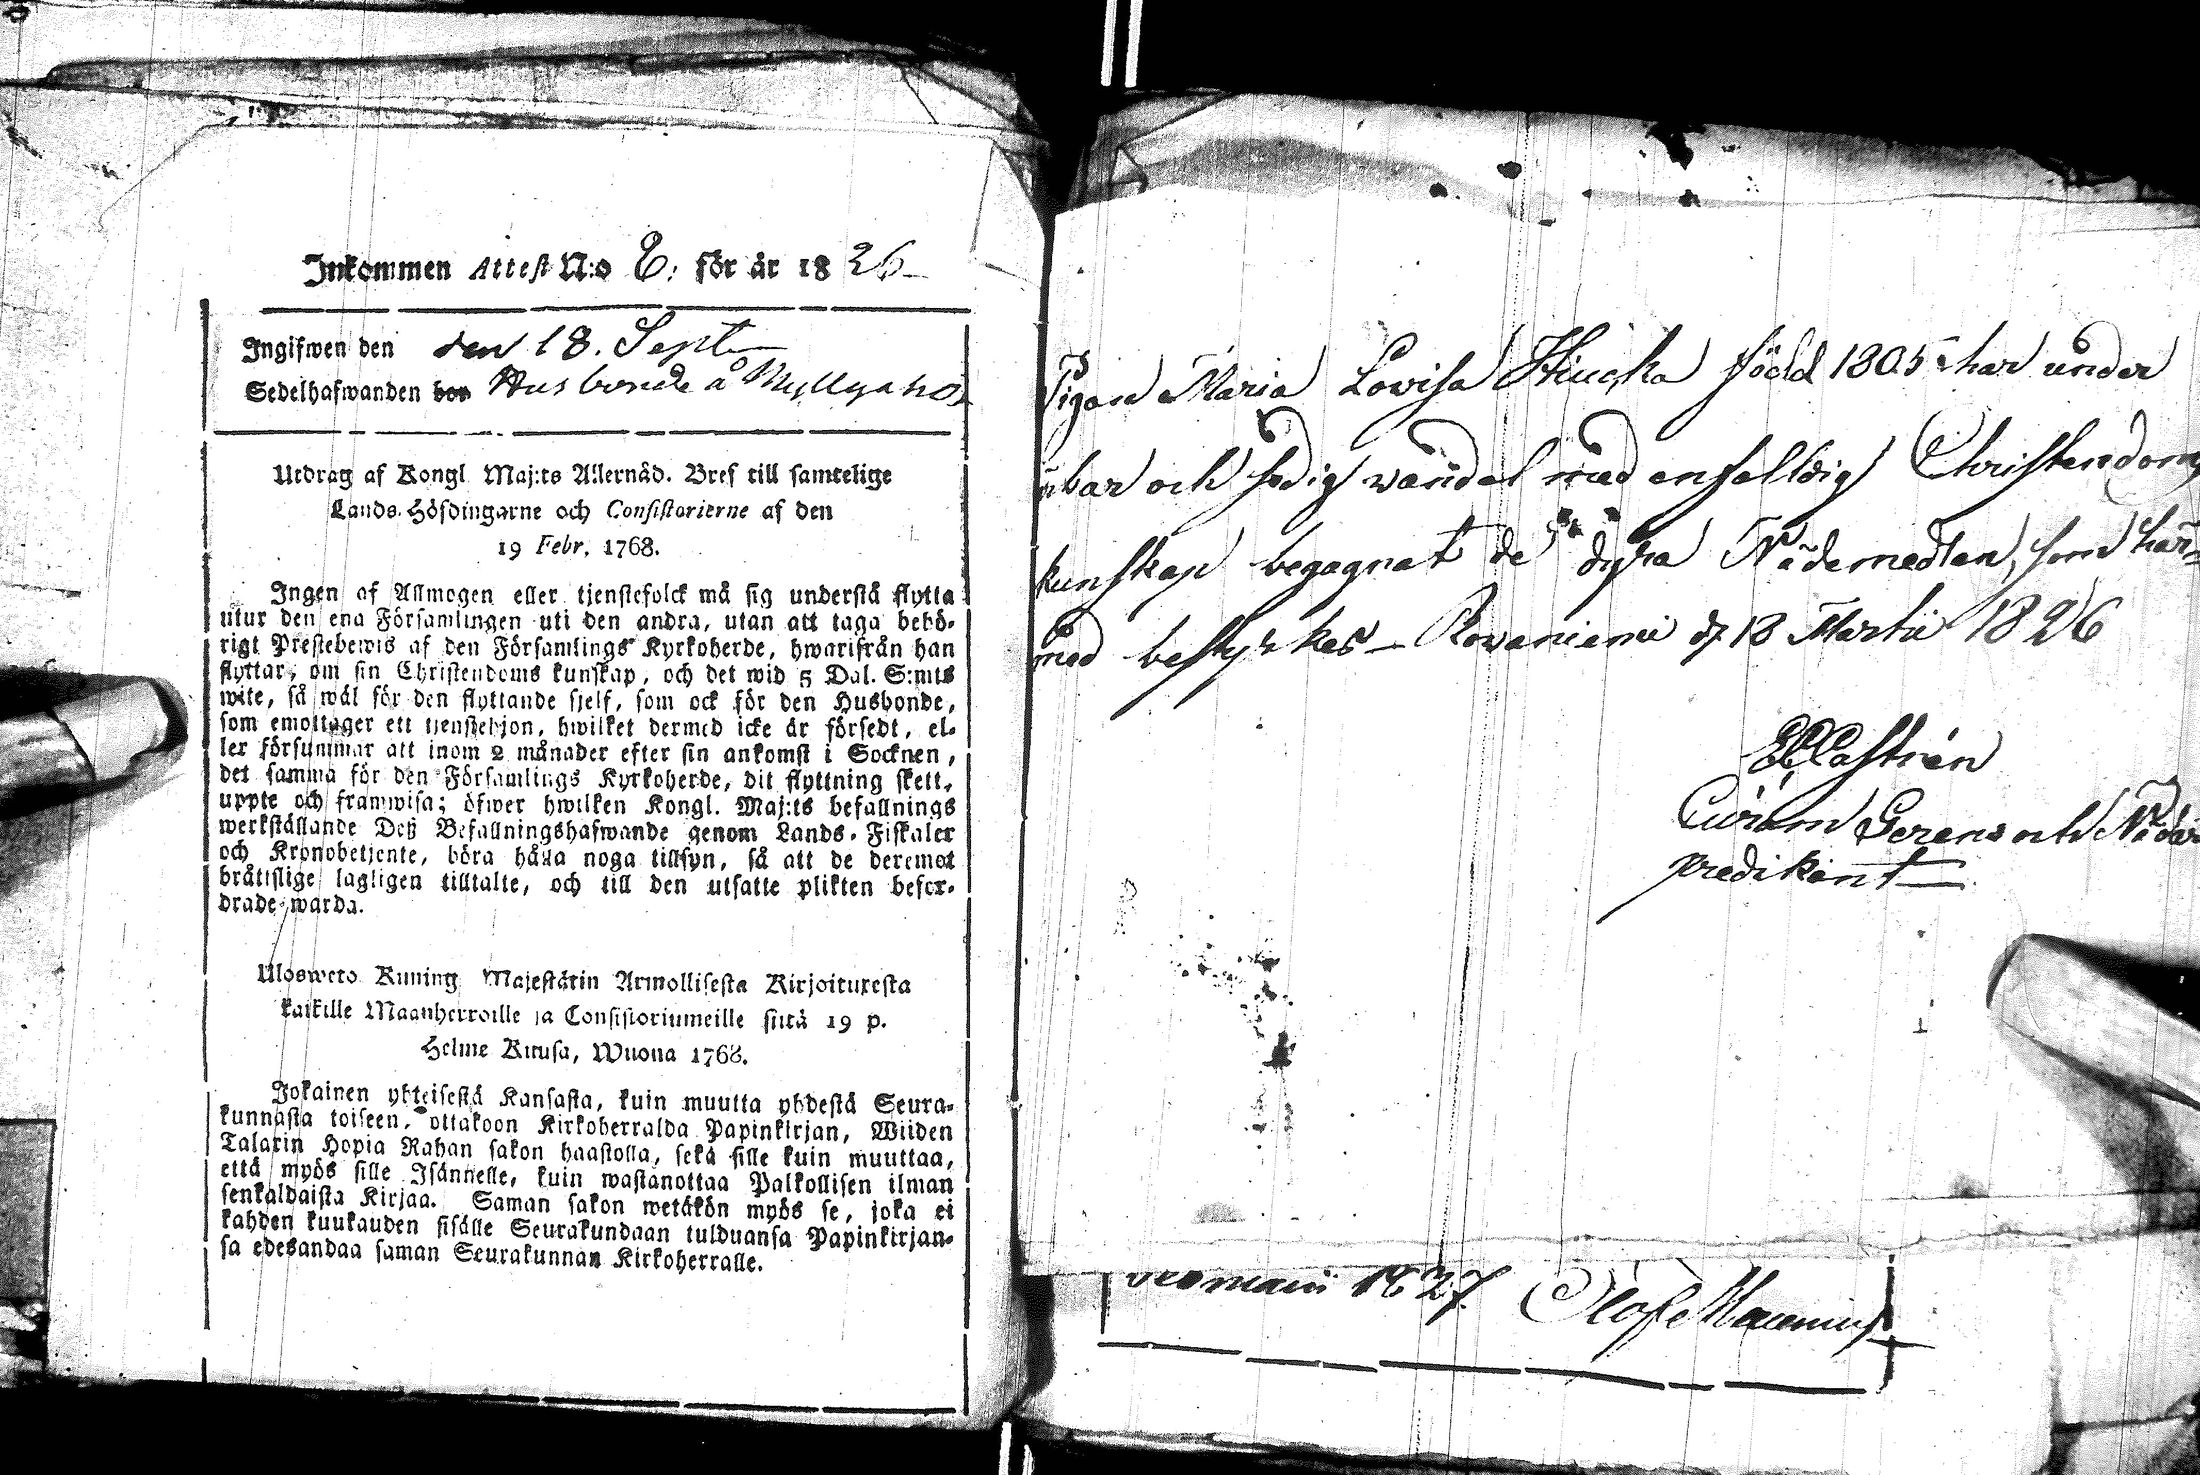 Inkommen Attest N:o 8: för år 1826
Ingifwen den den 18. Sept
Sedelhafwanden bor Husbonde å Myllyaho
Utdrag af Kongl. Maj:ts Allernåd. Bref till samtelige
Lands-Höfdingarne och Consistorierne af den
19 Febr. 1768.
Ingen af Allmogen eller tjenstefolck må sig understå flytta
utur den ena Församlingen uti den andra, utan att taga behö-
rigt Prestebewis af den Församlings Kyrkoherde, hwarifrån han
flyttar, om sin Christendoms kunskap, och det wid 5 Dal. S:mts
wite, så wäl för den flyttande sjelf, som ock för den Husbonde,
som emottager ett tjenstehjon, hwilket dermed icke är försedt, el-
ler försummar att inom 2 månader efter sin ankomst i Socknen,
det samma för den Församlings Kyrkoherde, dit flyttning skett,
uppte och framwisa; öfwer hwilken Kongl. Maj:ts befallnings
werkställande Deß Befallningshafwande genom Lands-Fiskaler
och Kronobetjente, böra hålla noga tillsyn, så att de deremot
bråttslige lagligen tilltalte, och till den utsatte plikten befor-
drade warda.
Ulosweto Kuning. Majestätin Armollisesta Kirjoituxesta
kaikille Maanherroille ja Consistoriumeille siitä 19 p.
Helme Kuusa, Wuona 1768.
Jokainen yhteisestä Kansasta, kuin muutta yhdestä Seura-
kunnasta toiseen, ottakoon Kirkoherralda Papinkirjan, Wiiden
Talarin Hopia Rahan sakon haastolla, sekä sille kuin muuttaa,
että myös sille Isännelle, kuin wastanottaa Palkollisen ilman
senkaldaista Kirjaa. Saman sakon wetäkön myös se, joka ei
kahden kuukauden sisälle Seurakundaan tulduansa Papinkirjan-
sa edesandaa saman Seurakunnan Kirkoherralle.
Pigan Maria Lovisa Hiucka född 1805 har under
ärbar och sedig vandel med enfaldig Christendoms
kunskap begagnat de dyra Nådemedlen, som här-
med bestyrkes Rovaniemi d. 18 Martii 1826
Castrén
Curam Gerens och Nådår
predikant
1827 Olof